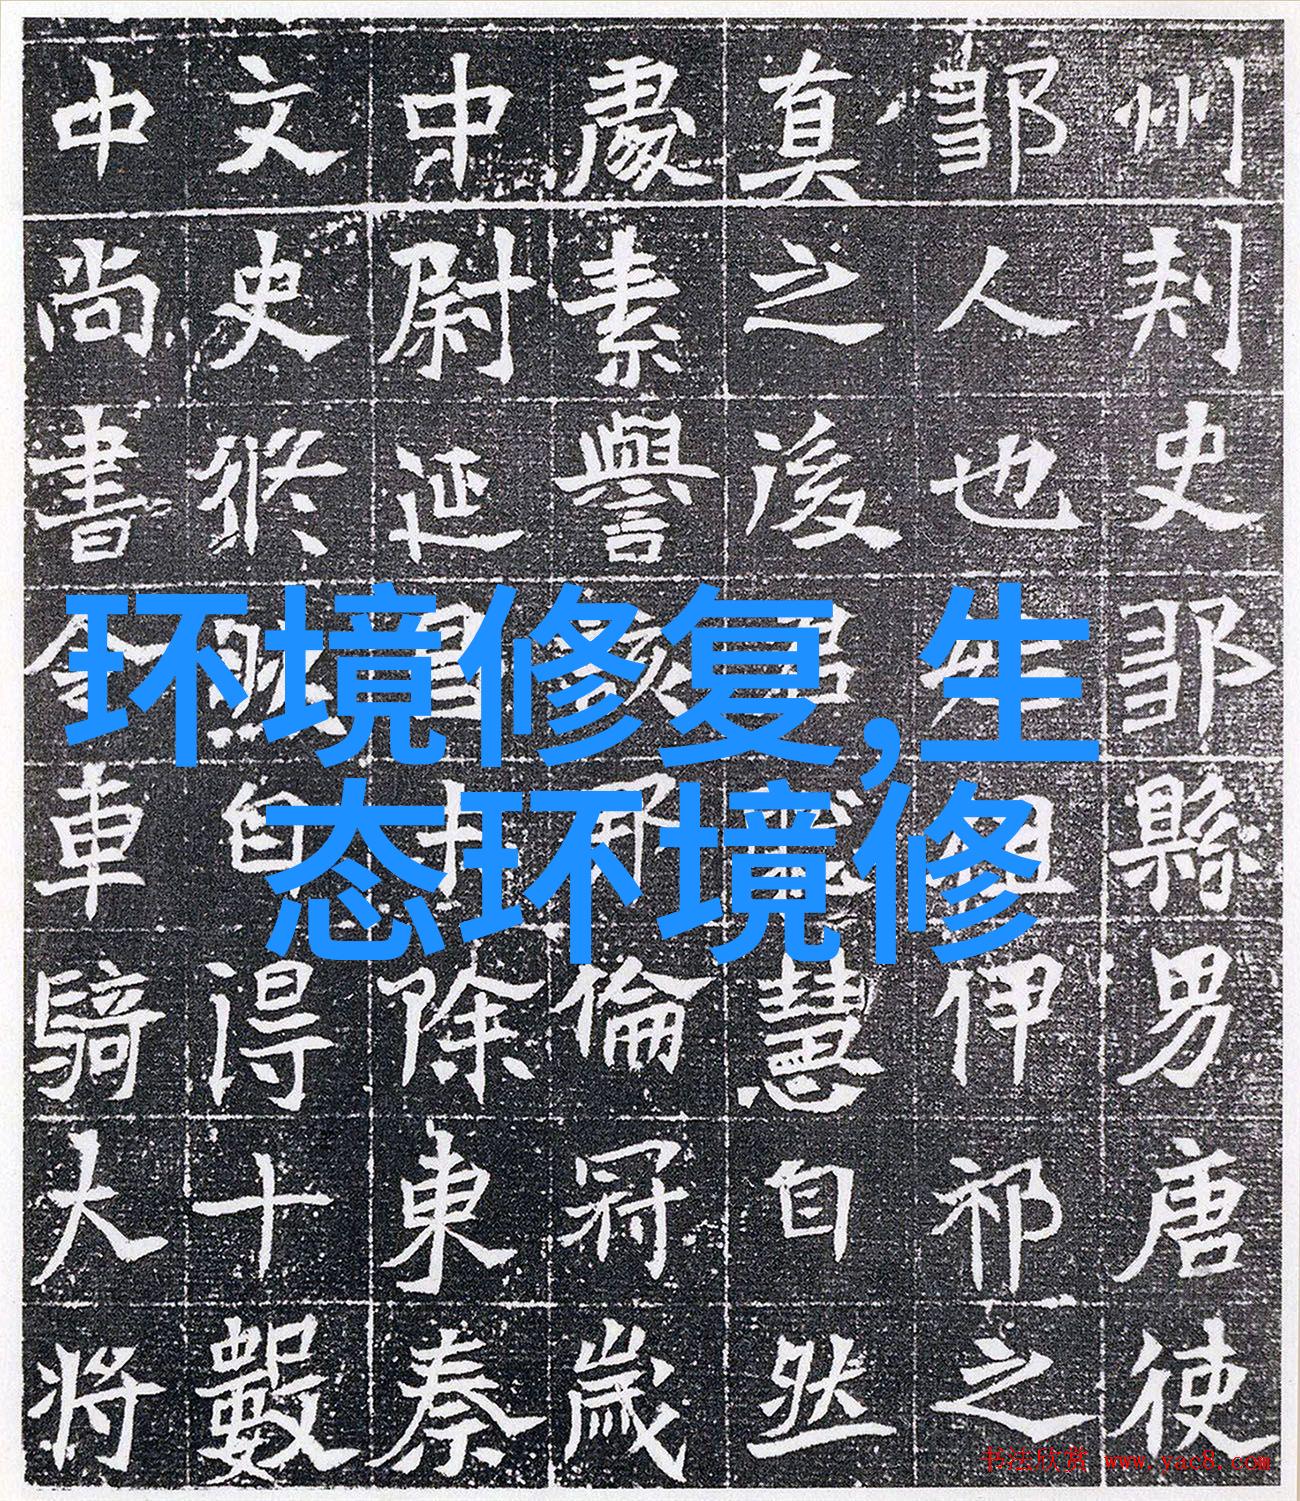 州刺史鄒縣男唐使
鄒人也伊祁之
真之後慧自然
處素譽倫冠歲
中尉延除東秦
文史條自得十數
中尚書令車騎大將
环境修复,生
态环境修
书法欣赏 www.yac8.com